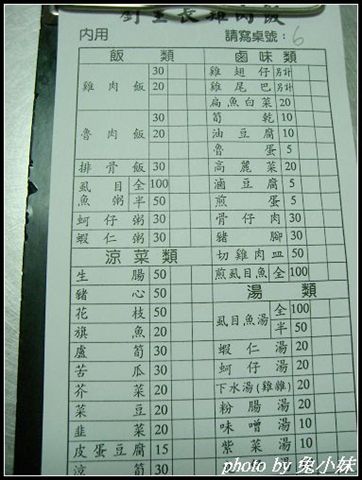 劉里長雞肉飯
內用
請寫桌號：6
飯類
雞肉飯 30
20
魯肉飯 30
20
排骨飯 30
虱目魚粥 全 100
半 50
蚵仔粥 30
蝦仁粥 30
涼菜類
生腸 50
豬心 50
花枝 50
旗魚 20
蘆筍 30
苦瓜 30
芥菜 20
菜豆 20
韭菜 20
皮蛋豆腐 15
涼筍 30
滷味類
雞翅仔 別計
雞尾巴 別計
扁魚白菜 20
筍乾 10
油豆腐 10
魯蛋 5
高麗菜 20
滷豆腐 5
煎蛋 5
骨仔肉 30
豬腳 30
切雞肉皿 50
煎虱目魚 全 100
湯類
虱目魚湯 全 100
半 50
蝦仁湯 20
蚵仔湯 20
下水湯(雞雜) 20
粉腸湯 20
味噌湯 10
紫菜湯
photo by 兔小妹